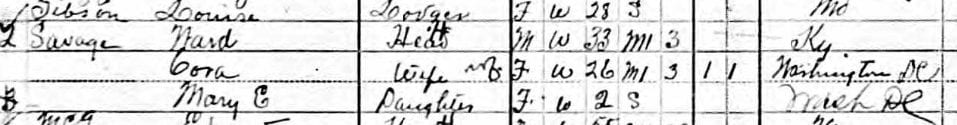 Gibson Louise Lodger F W 28 S Mo
2 Savage Ward Head M W 33 M1 3 Ky
Cora Wife F W 26 M1 3 1 1 Washington DC
Mary E Daughter F W 2 S Wash DC